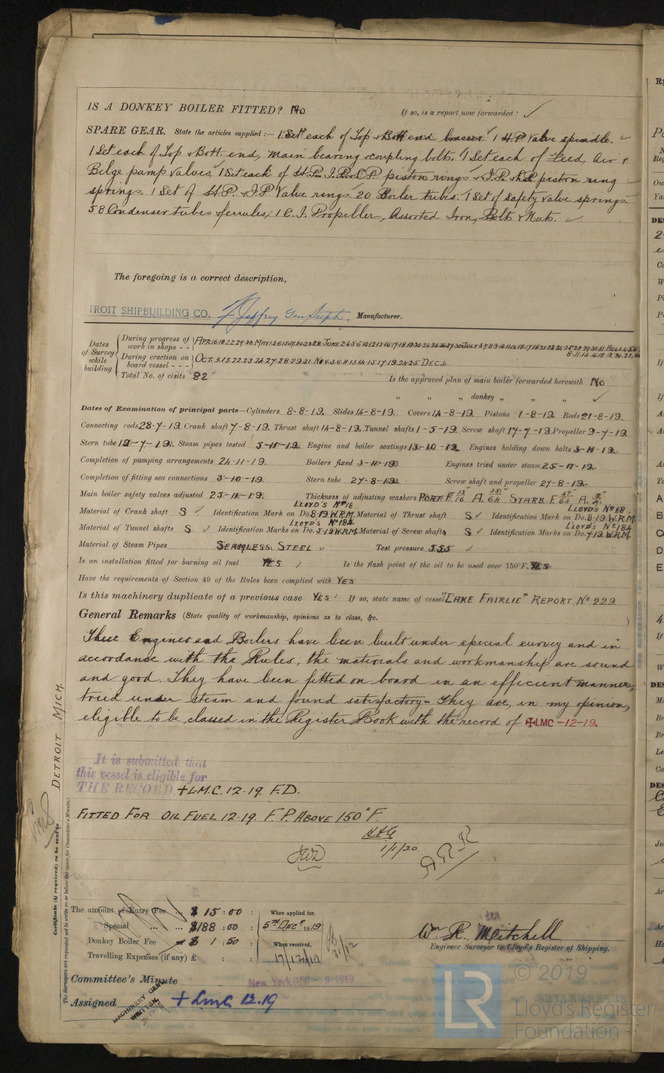 IS A DONKEY BOILER FITTED? No If so, is a report now forwarded? ✓
SPARE GEAR. State the articles supplied:— 1 Set each of Top & Bott end brasses. 1 H.P. Valve spindle.
1 Set each of Top & Bott. end, main bearing coupling bolts. 1 Set each of Feed Air &
Bilge pump valves. 1 Set each of H.P. I.P. & L.P. piston rings piston ring
springs. 1 Set of H.P. & I.P Valve rings. 20 Boiler tubes. 1 Set of safety valve springs
58 Condenser tubes & ferrules. 1 C.I. Propeller, Assorted Iron, Bolts & Nuts.
The foregoing is a correct description,
TROIT SHIPBUILDING CO. Manufacturer.
Dates of Survey while building
During progress of work in shops - -
During erection on board vessel - - -
Total No. of visits 82
Is the approved plan of main boiler forwarded herewith No
" " " donkey " " "
Dates of Examination of principal parts—Cylinders 8-8-19. Slides 14-8-19. Covers 14-8-19. Pistons 1-8-19. Rods 21-8-19.
Connecting rods 28-7-19. Crank shaft 7-8-19. Thrust shaft 14-8-19. Tunnel shafts 1-5-19. Screw shaft 17-7-19. Propeller 9-7-19.
Stern tube 12-7-19. Steam pipes tested 5-11-19. Engine and boiler seatings 13-10-19. Engines holding down bolts 3-11-19.
Completion of pumping arrangements 24-11-19. Boilers fixed 3-11-19. Engines tried under steam 25-11-19.
Completion of fitting sea connections 3-10-19. Stern tube 27-8-19. Screw shaft and propeller 27-8-19.
Main boiler safety valves adjusted 25-11-19. Thickness of adjusting washers PORT F STARB. F
Material of Crank shaft S ✓ Identification Mark on Do. LLOYD'S No 16 8.19 W.R.M. Material of Thrust shaft S ✓ Identification Mark on Do. LLOYD'S No 18 8.19 W.R.M.
Material of Tunnel shafts S ✓ Identification Marks on Do. LLOYD'S No 18A 5.19 W.R.M. Material of Screw shafts S ✓ Identification Marks on Do. LLOYD'S No 18A 7.19 W.R.M.
Material of Steam Pipes SEAMLESS STEEL Test pressure 555 ✓
Is an installation fitted for burning oil fuel YES ✓ Is the flash point of the oil to be used over 150°F. YES
Have the requirements of Section 49 of the Rules been complied with YES
Is this machinery duplicate of a previous case YES ✓ If so, state name of vessel "LAKE FAIRLIE" REPORT No 229
General Remarks (State quality of workmanship, opinions as to class, &c.
These Engines and Boilers have been built under special survey and in
accordance with the Rules; the materials and workmanship are sound
and good. They have been fitted on board in an efficient manner,
tried under steam and found satisfactory. They are, in my opinion,
eligible to be classed in the Register Book with the record of +LMC -12-19.
It is submitted that
this vessel is eligible for
THE RECORD +L.M.C. 12.19. F.D.
FITTED FOR OIL FUEL 12.19. F.P. ABOVE 150°F.
1/1/20
DETROIT MICH.
The amount of Entry Fee ... $ 15 : 00
Special ... $188 : 00
Donkey Boiler Fee ... $ 1 : 50
Travelling Expenses (if any) £
When applied for,
5th Dec. 1919
When received,
17/12/19
Wm R. Mitchell
Engineer Surveyor to Lloyd's Register of Shipping.
Committee's Minute New York DEC 1919
Assigned + LMC 12.19
MACHINERY CERT. WRITTEN
© 2019
LR Lloyd's Register
Foundation